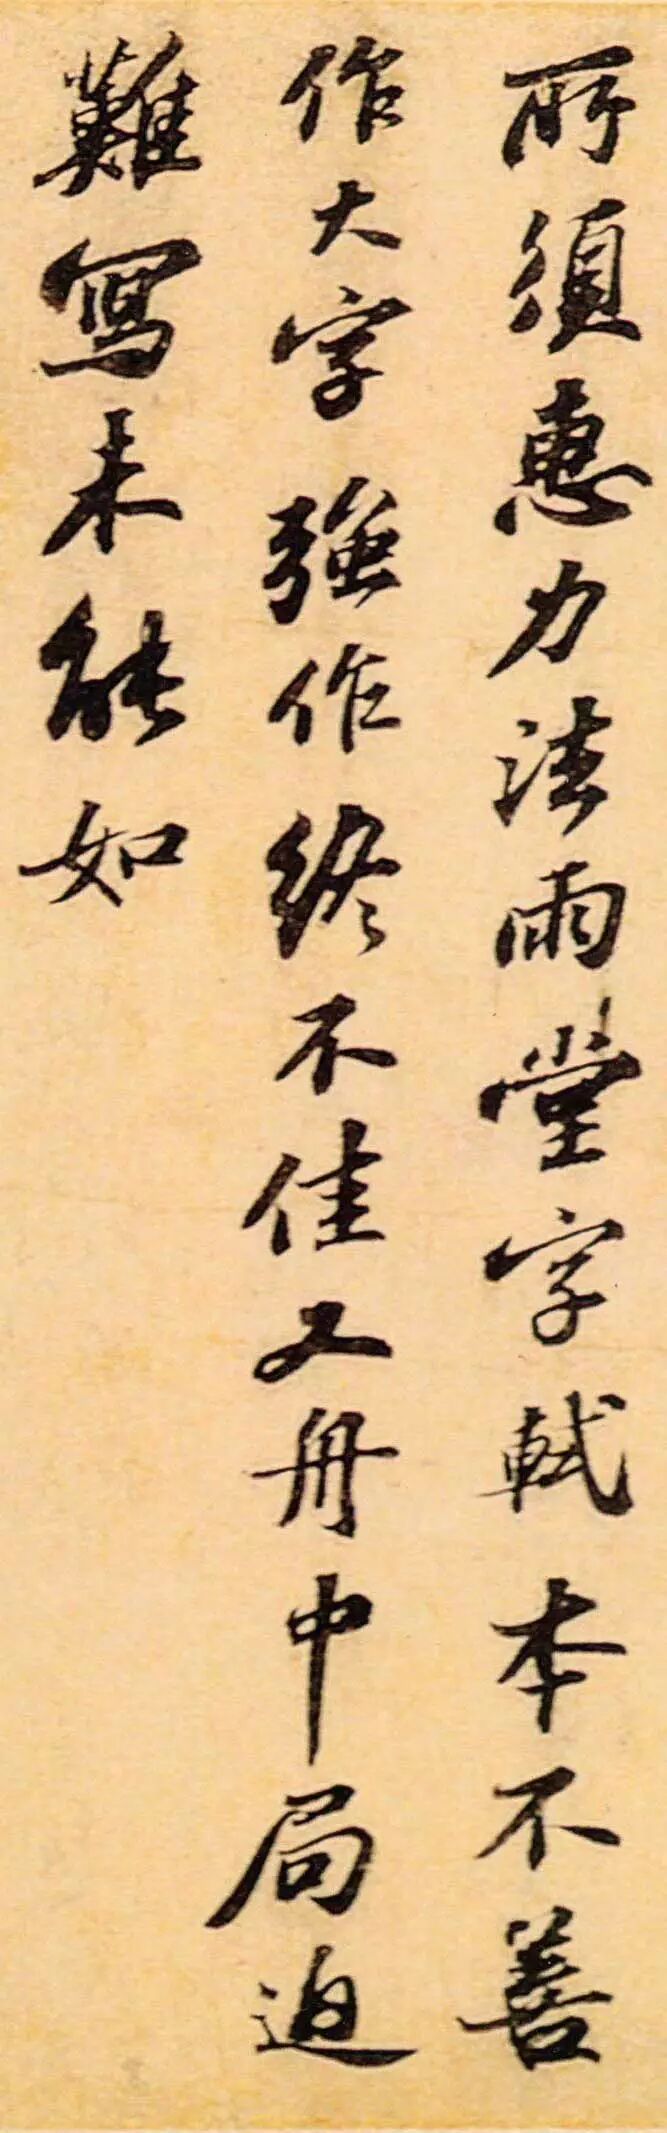 所須惠力法雨堂字軾本不善
作大字強作終不佳又舟中局迫
難寫未能如